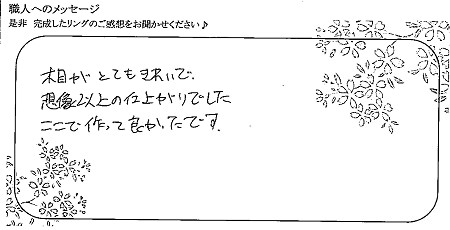 職人へのメッセージ
是非 完成したリングのご感想をお聞かせください♪
木目がとてもきれいで、
想像以上の仕上がりでした
ここで作って良かったです。